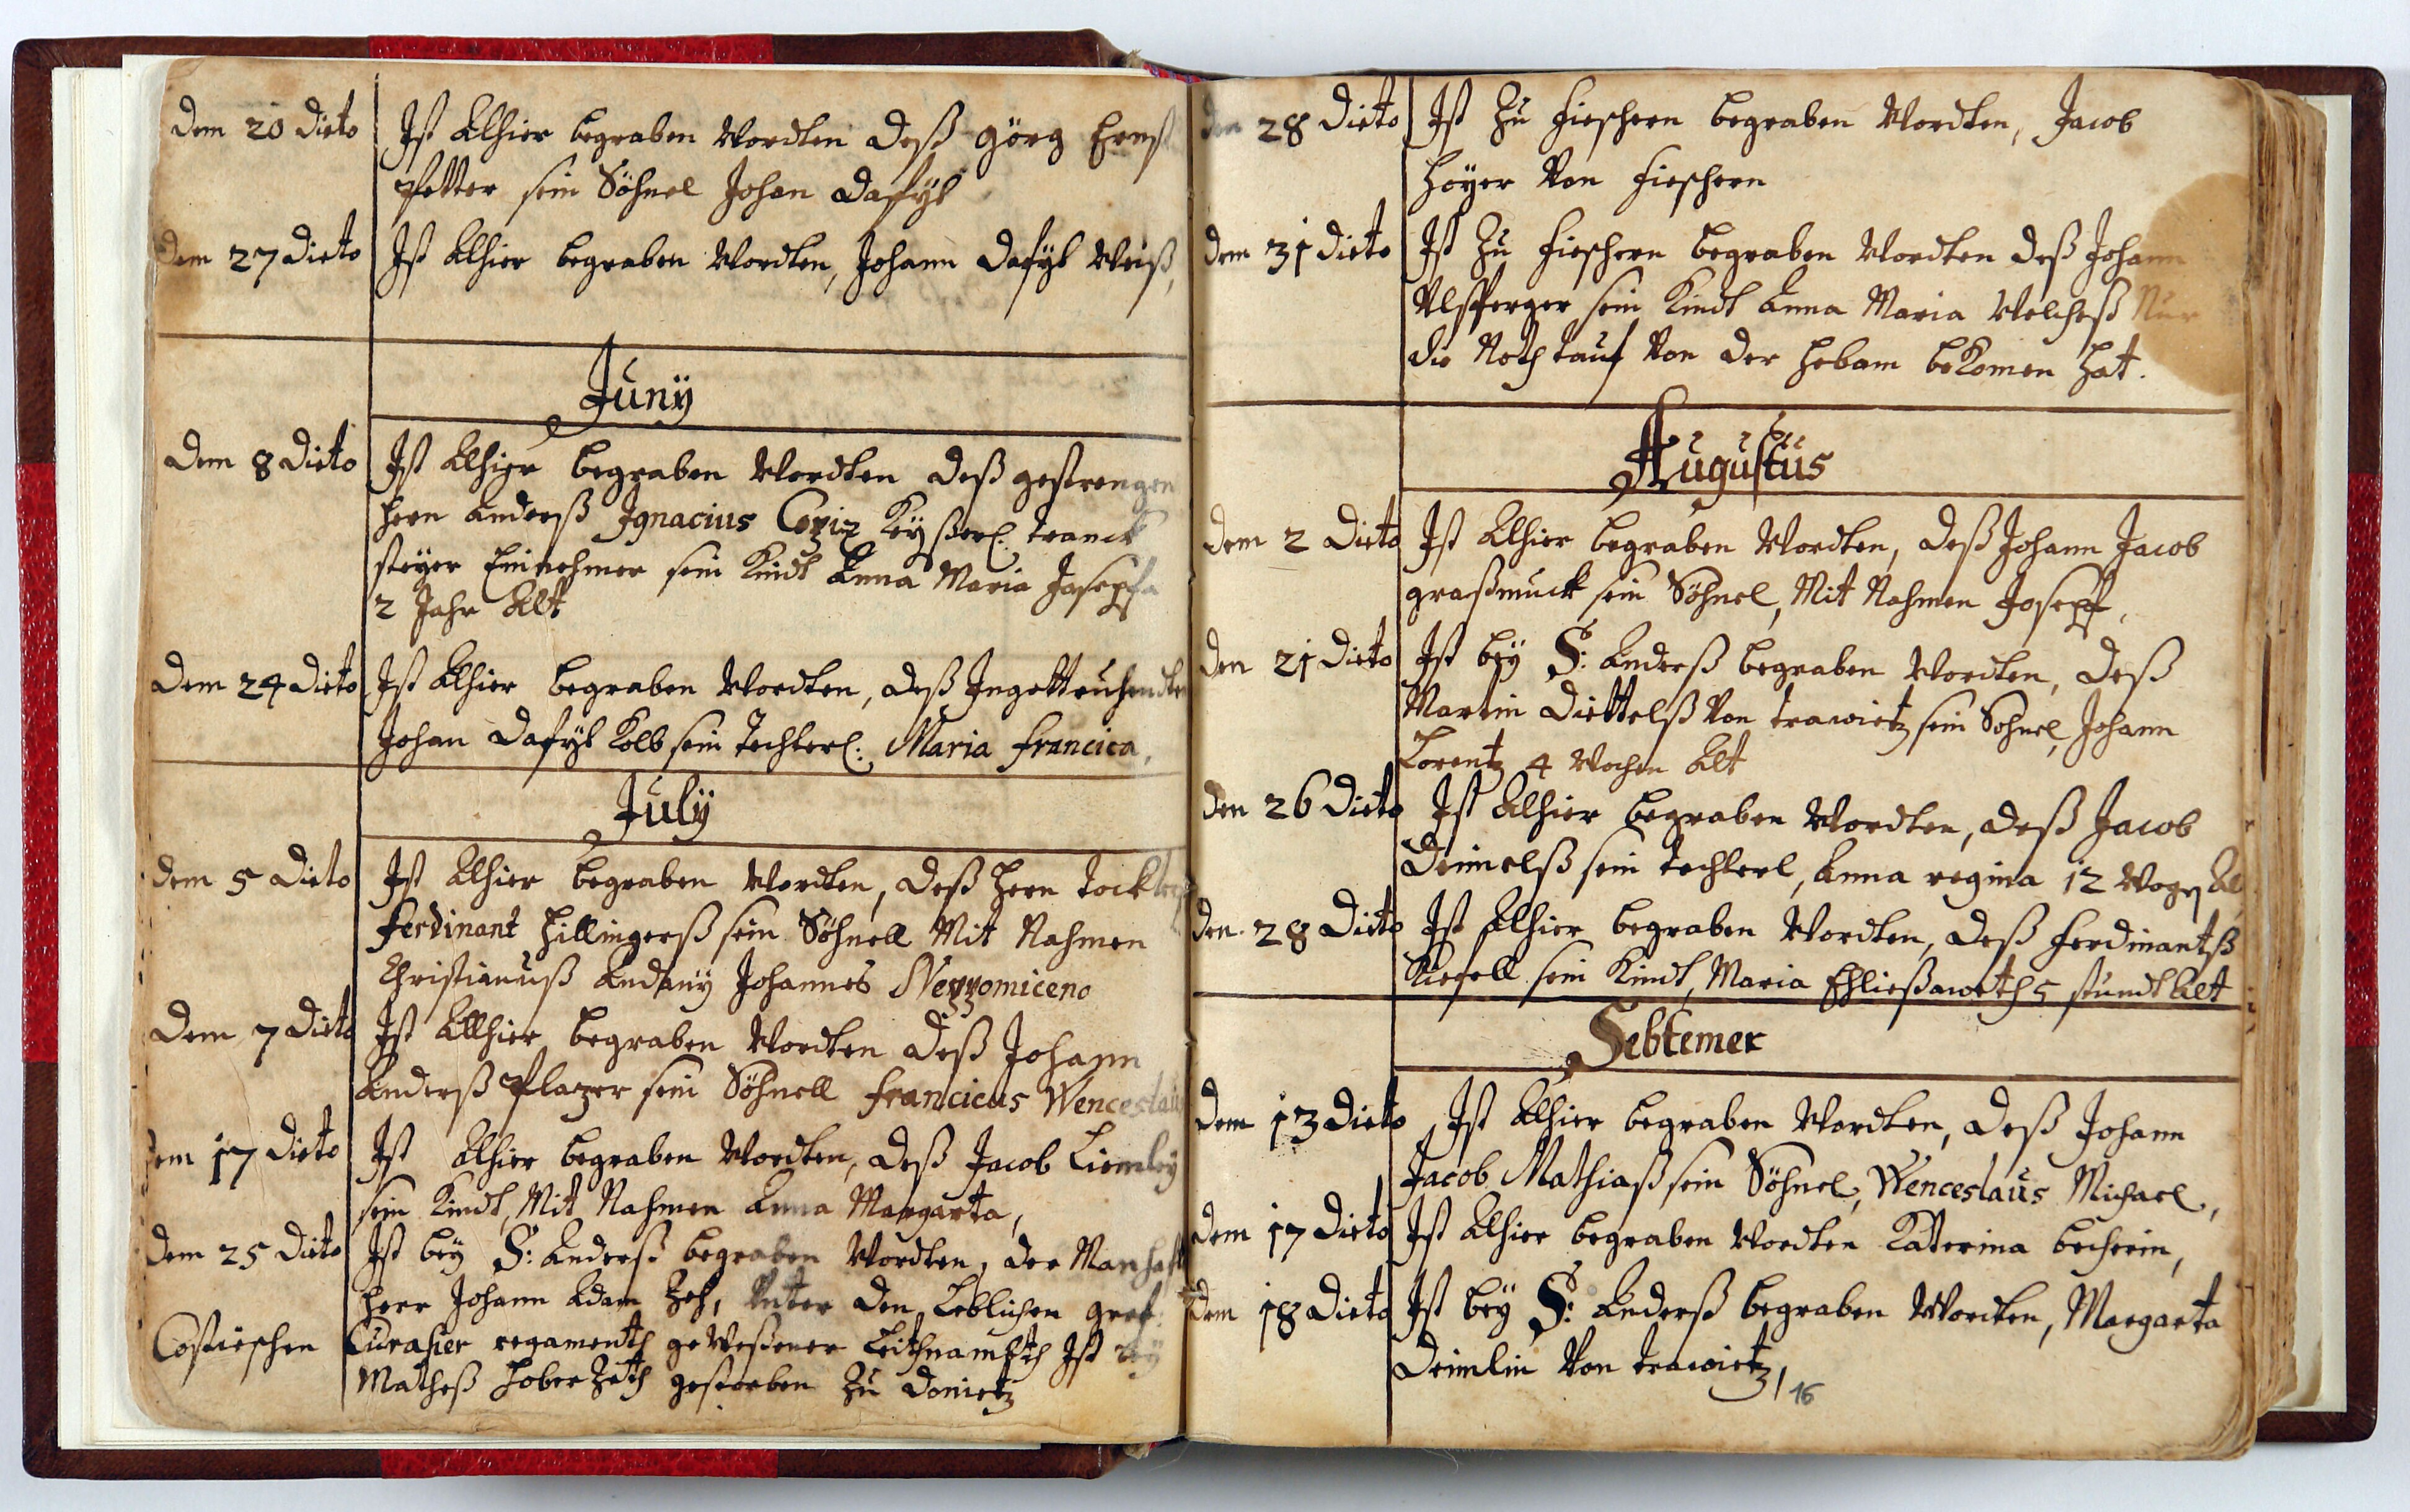 Dem 20 Dieto Ist Alhier begraben Wordten Deß Görg Ernst
Petter sein Söhnel Johan Dafÿt
Dem 27 Dieto Ist Alhier begraben Wordten, Johann Dafÿt Weiß,
Junÿ
Dem 8 Dieto Ist Alhier begraben Wordten Deß gestrengen
Herrn Anderß Ignacius Keÿßerl: tranck
steÿer Einnehmer sein Kindt Anna Maria Josepfa
2 Jahr Alt
Dem 24 Dieto Ist Alhier begraben Wordten, Deß
Johan Dafÿt Kolb sein Techterl: Maria Francica,
Julÿ
Dem 5 Dieto Ist Alhier begraben Wordten, Deß Herrn
Ferdinant Hillingerß sein Söhnell Mit Nahmen
Christianuß Andanÿ Johannes
Dem 7 Dieto Ist Allhier begraben Wordten Deß Johann
Anderß Plazer sein Söhnell Francicus Wenceslaus
Dem 17 Dieto Ist Alhier begraben Wordten, Deß Jacob
sein Kindt, Mit Nahmen Anna Margarta,
Dem 25 Dieto Ist beÿ S: Anderß begraben Wordten, Der Manhaft
Herr Johann Adam Zeh, Unter Den Leblichen gref:
Costieschen Curasier regamenth geWeßener Ist beÿ
Matheß gestorben Zu Donietz
Den 28 Dieto Ist Zu Fischern begraben Wordten, Jacob
Höÿer Von Fischern
Dem 31 Dieto Ist Zu Fischern begraben Wordten Deß Johann
Ulsperger sein Kindt Anna Maria Welcheß Nur
die Noth tauf Von Der Hebam beKomen Hat.
Augustus
Dem 2 Dieto Ist Alhier begraben Wordten, Deß Johann Jacob
graßmuck sein Söhnel, Mit Nahmen Josepf,
Den 21 Dieto Ist beÿ S: Anderß begraben Wordten, Deß
Martin Diettelß Von trawietz sein Sohnel, Johann
Lorentz 4 Wochen Alt
Den 26 Dieto Ist Alhier begraben Wordten, Deß Jacob
Deimelß sein techterl, Anna regina 12
Den 28 Dieto Ist Alhier begraben Wordten, Deß Ferdinantß
sein Kindt, Maria Ehließaweth 5 stundt Alt
Sebtemer
Dem 13 Dieto Ist Alhier begraben Wordten, Deß Johann
Jacob Mathiaß sein Söhnel, Wenceslaus Michael,
Dem 17 Dieto Ist Alhier begraben Wordten Katterina becherin,
Dem 18 Dieto Ist beÿ S: Anderß begraben Wordten, Margarta
Deimlin Von trawietz,
16